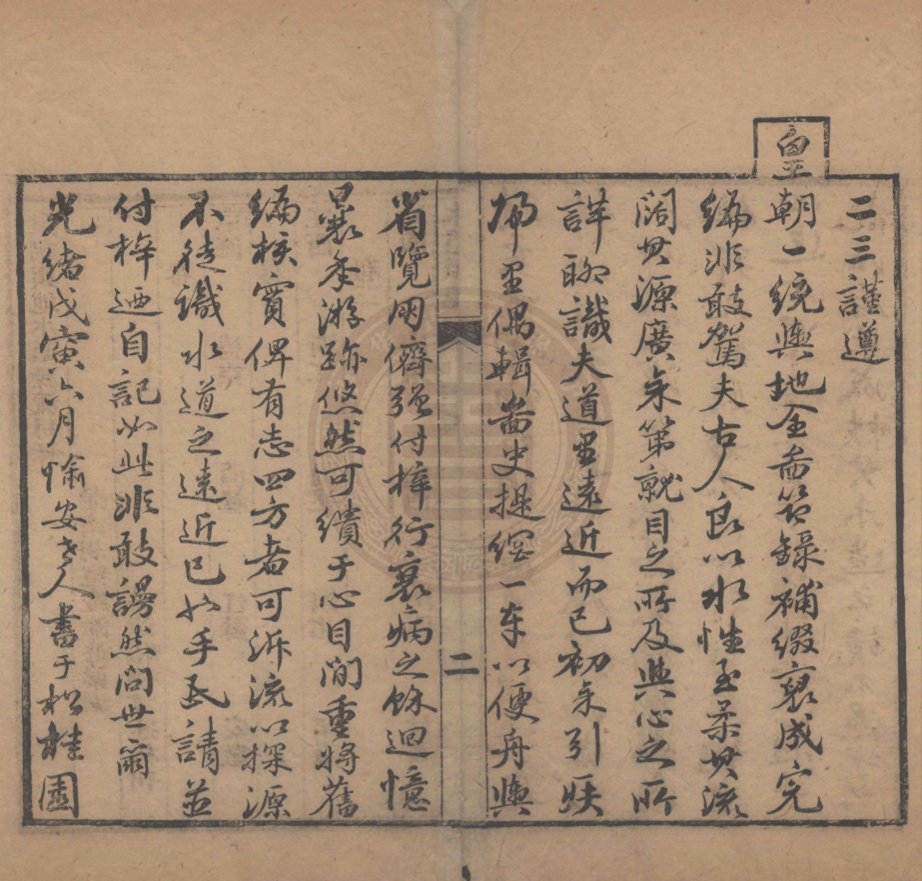 二三謹遵
皇朝一統輿地全啚節錄補綴裒成完
編非敢駕夫古人良以水性至柔其流
闊其源廣矣第就目之所及與心之所
詳聊識夫道里遠近而已初矣引疾
歸里偶輯啚史提綱一車以便舟輿
二
省覽罔儕强付梓行衰病之餘迴憶
曩年游跡悠然可繢于心目間重將舊
編核實俾有志四方者可泝流以探源
不徒識水道之遠近已也手民請並
付梓迺自記如此非敢謾然問世爾
光緒戊寅六月愉安老人書于松桂園